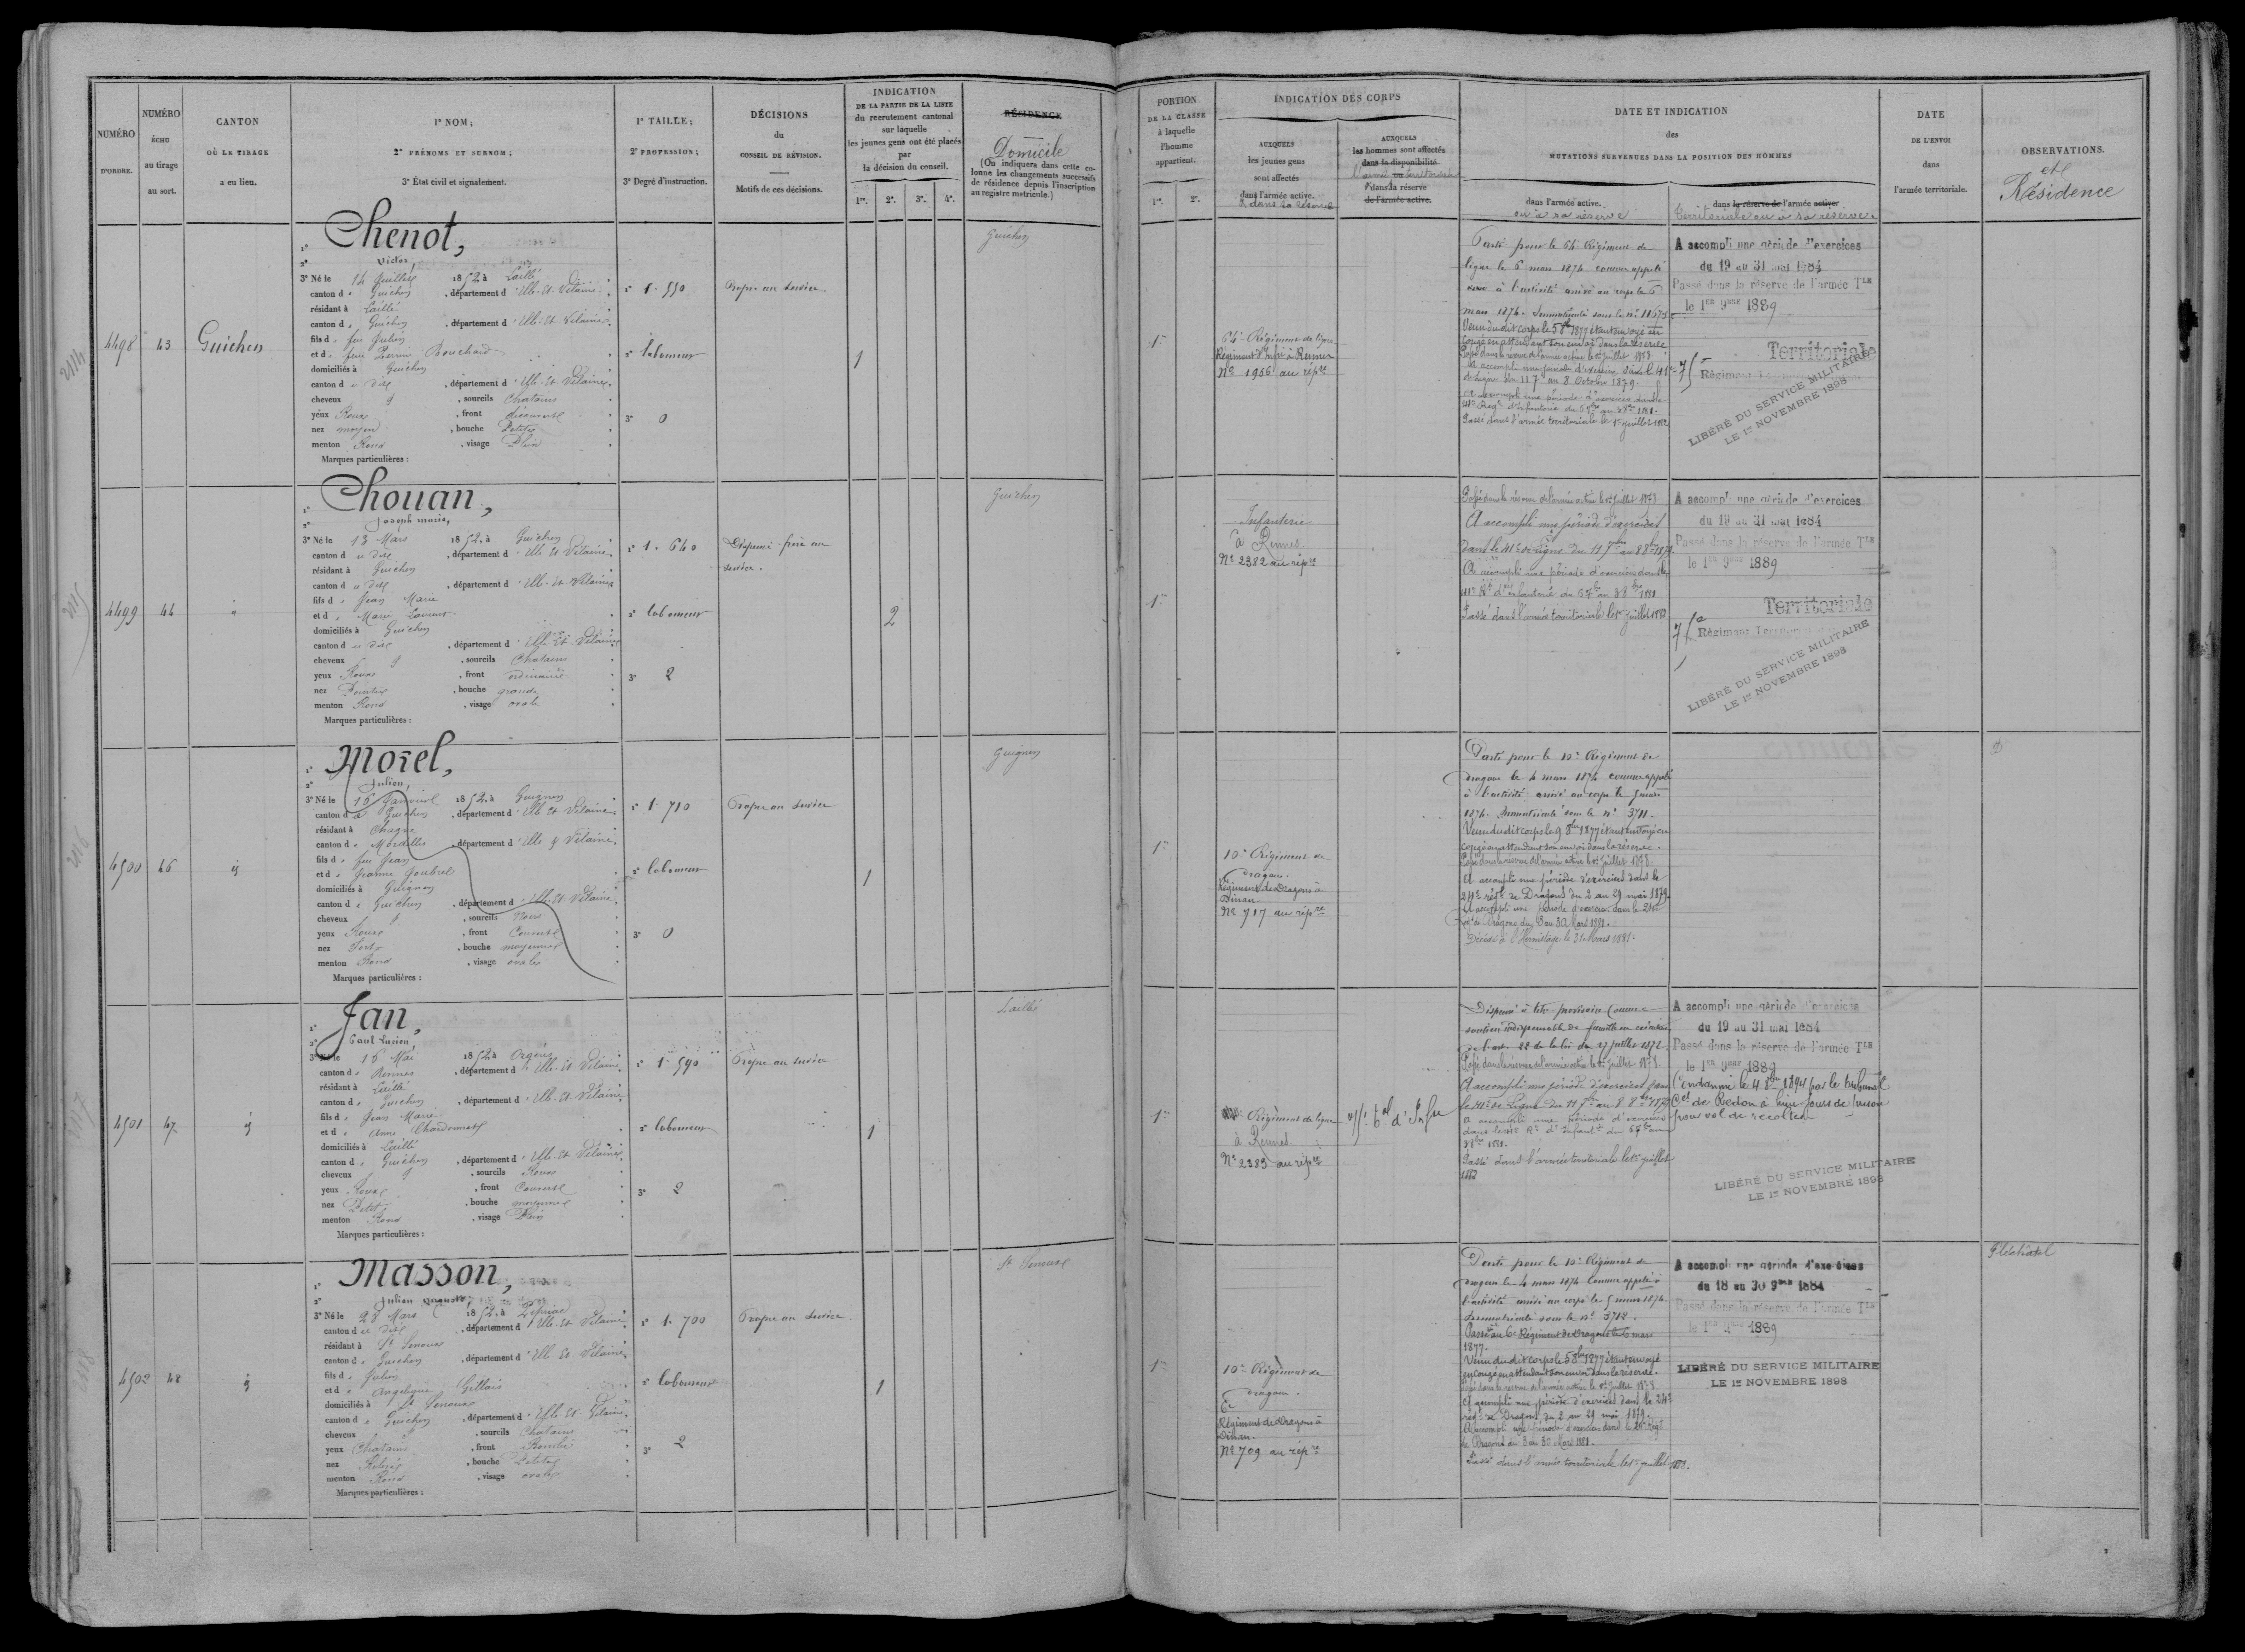 NUMÉRO
D'ORDRE.
NUMÉRO
ÉCHU
au tirage
au sort.
CANTON
OÙ LE TIRAGE
a eu lieu.
1º NOM;
2º PRÉNOMS ET SURNOM;
3º État civil et signalement.
1º TAILLE;
2º PROFESSION;
3º Degré d'instruction.
DÉCISIONS
du
CONSEIL DE RÉVISION.
Motifs de ces décisions.
INDICATION
DE LA PARTIE DE LA LISTE
du recrutement cantonal
sur laquelle
les jeunes gens ont été placés
par
la décision du conseil.
1re. 2e. 3e. 4e.
RÉSIDENCE
Domicile
(On indiquera dans cette co-
lonne les changements successifs
de résidence depuis l'inscription
au registre matricule.)
PORTION
DE LA CLASSE
à laquelle
l'homme
appartient.
1re. 2e.
INDICATION DES CORPS
AUXQUELS
les jeunes gens
sont affectés
dans l'armée active.
& dans sa réserve
AUXQUELS
les hommes sont affectés
dans la disponibilité
l'armée ou territoriale
dans la réserve
de l'armée active.
DATE ET INDICATION
des
MUTATIONS SURVENUES DANS LA POSITION DES HOMMES
dans l'armée active.
ou à sa réserve
dans la réserve de l'armée active
Territoriale ou à sa réserve.
DATE
DE L'ENVOI
dans
l'armée territoriale.
OBSERVATIONS.
et
Résidence
4498
43
Guichen
1º Chenot,
2º Victor,
3º Né le 14 Juillet 1852, à Laillé
canton de Guichen, département d'Ille-Et-Vilaine
résidant à Laillé
canton de Guichen, département d'Ille-Et-Vilaine
fils de feu Julien
et de feue Perrine Bouchard
domiciliés à Guichen
canton du dit, département d'Ille-Et-Vilaine
cheveux &, sourcils Chatains
yeux Roux, front découvert
nez moyen, bouche Petite
menton Rond, visage Plein
Marques particulières :
1º 1. 550
2º laboureur
3º 0
Propre au service
1
Guichen
1re
64e Régiment de ligne
Régiment d'Infie à Rennes
Nº 1956 au répre
Parti pour le 64e Régiment de
ligne le 6 mars 1874 comme appelé
à l'activité arrivé au corps le 6
mars 1874. Immatriculé sous le nº 11673
Venu du dit corps le 5 8bre 1877 étant envoyé en
congé en attendant son envoi dans la réserve
Passé dans la réserve de l'armée active le 1er Juillet 1878.
A accompli une période d'exercices dans le 41e
de ligne du 11 7bre au 8 Octobre 1879.
A accompli une période d'exercices dans le
41e Régt d'Infanterie du 6 7bre au 3 8bre 1881.
Passé dans l'armée territoriale le 1er juillet 1882
A accompli une période d'exercices
du 19 au 31 mai 1884
Passé dans la réserve de l'armée Tle
le 1er 9bre 1889
Territoriale
Régiment
LIBÉRÉ DU SERVICE MILITAIRE
LE 1er NOVEMBRE 1898
4499
44
"
1º Chouan,
2º Joseph Marie,
3º Né le 13 Mars 1852, à Guichen
canton du dit, département d'Ille-Et-Vilaine
résidant à Guichen
canton du dit, département d'Ille-Et-Vilaine
fils de Jean Marie
et de Marie Laurent
domiciliés à Guichen
canton du dit, département d'Ille-Et-Vilaine
cheveux &, sourcils Chatains
yeux Roux, front ordinaire
nez Pointu, bouche grande
menton Rond, visage ovale
Marques particulières :
1º 1. 640
2º laboureur
3º 2
Dispensé frère au
service.
2
Guichen
1re
Infanterie
à Rennes
Nº 2382 au répre
Passé dans la réserve de l'armée active le 1er Juillet 1878
A accompli une période d'exercices
dans le 41e de ligne du 11 7bre au 8 8bre 1879.
A accompli une période d'exercices dans le
41e Rt d'infanterie du 6 7bre au 3 8bre 1881
Passé dans l'armée territoriale le 1er juillet 1882
A accompli une période d'exercices
du 19 au 31 mai 1884
Passé dans la réserve de l'armée Tle
le 1er 9bre 1889
Territoriale
Régiment Territorial
LIBÉRÉ DU SERVICE MILITAIRE
LE 1er NOVEMBRE 1898
4500
46
id
1º Morel,
2º Julien,
3º Né le 16 Janvier 1852, à Guignen
canton de Guichen, département d'Ille Et Vilaine
résidant à
canton de Mordelles, département d'Ille & Vilaine
fils de feu Jean
et de Jeanne Joubrel
domiciliés à Guignen
canton de Guichen, département d'Ille-Et-Vilaine
cheveux &, sourcils Noirs
yeux Roux, front Couvert
nez Fort, bouche moyenne
menton Rond, visage ovale
Marques particulières :
1º 1. 710
2º laboureur
3º 0
Propre au service
1
Guignen
1re
10e Régiment de
dragons.
Régiment de Dragons à
Dinan.
Nº 717 au répre
Parti pour le 10e Régiment de
dragons le 4 mars 1874 comme appelé
à l'activité arrivé au corps le 5 mars
1874. Immatriculé sous le nº 3711.
Venu du dit corps le 9 8bre 1877 étant envoyé en
congé en attendant son envoi dans la réserve.
Passé dans la réserve de l'armée active le 1er Juillet 1878.
A accompli une période d'exercices dans le
24e régt de Dragons du 2 au 29 mai 1879.
A accompli une période d'exercices dans le 24e
Régt de Dragons du 3 au 30 Mars 1881.
Décédé à l'Hermitage le 31 Mars 1881.
D
4501
47
id
1º Jan,
2º Paul Lucien,
3º Né le 16 Mai 1852, à Orgères
canton de Rennes, département d'Ille-Et-Vilaine
résidant à Laillé
canton de Guichen, département d'Ille-Et-Vilaine
fils de Jean Marie
et de Anne Chardonnet
domiciliés à Laillé
canton de Guichen, département d'Ille-Et-Vilaine
cheveux &, sourcils Roux
yeux Roux, front Couvert
nez Petit, bouche moyenne
menton Rond, visage Plein
Marques particulières :
1º 1. 590
2º laboureur
3º 2
Propre au service
1
Laillé
1re
Régiment de ligne
à Rennes
Nº 2383 au répre
Dispensé à titre provisoire comme
soutien indispensable de famille en exécution
de l'art. 22 de la loi du 27 juillet 1872.
Passé dans la réserve de l'armée active le 1er Juillet 1878.
A accompli une période d'exercices dans
le 41e de Ligne du 11 7bre au 8 8bre 1879
A accompli une période d'exercices
dans le 41e Rt d'Infant. du 6 7bre au
3 8bre 1881.
Passé dans l'armée territoriale le 1er juillet
1882
A accompli une période d'exercices
du 19 au 31 mai 1884
Passé dans la réserve de l'armée Tle
le 1er 9bre 1889
Condamné le 4 8bre 1894 par le tribunal
Cel de Redon à huit jours de prison
pour vol de récoltes
LIBÉRÉ DU SERVICE MILITAIRE
LE 1er NOVEMBRE 1898
4502
48
id
1º Masson,
2º Julien Auguste,
3º Né le 28 Mars 1852, à Pipriac
canton du dit, département d'Ille-Et-Vilaine
résidant à St Senoux
canton de Guichen, département d'Ille-Et-Vilaine
fils de Julien
et de Angélique Gillais
domiciliés à St Senoux
canton de Guichen, département d'Ille-Et-Vilaine
cheveux &, sourcils Chatains
yeux Chatains, front Bombé
nez Relevé, bouche Petite
menton Rond, visage ovale
Marques particulières :
1º 1. 700
2º laboureur
3º 2
Propre au service.
1
St Senoux
1re
10e Régiment de
dragons.
6e
Régiment de Dragons à
Dinan.
Nº 709 au répre
Parti pour le 10e Régiment de
dragons le 4 mars 1874 comme appelé à
l'activité arrivé au corps le 5 mars 1874.
Immatriculé sous le nº 3712.
Passé au 6e Régiment de Dragons le 6 mars
1877.
Venu du dit corps le 5 8bre 1877 étant envoyé
en congé en attendant son envoi dans la réserve.
Passé dans la réserve de l'armée active le 1er Juillet 1878
A accompli une période d'exercices dans le 24e
régt de Dragons, du 2 au 29 mai 1879.
A accompli une période d'exercices dans le 24e Régt
de Dragons du 3 au 30 Mars 1881.
Passé dans l'armée territoriale le 1er juillet 1882.
A accompli une période d'exercices
du 18 au 30 9bre 1884
Passé dans la réserve de l'armée Tle
le 1er 9bre 1889
LIBÉRÉ DU SERVICE MILITAIRE
LE 1er NOVEMBRE 1898
Pléchâtel